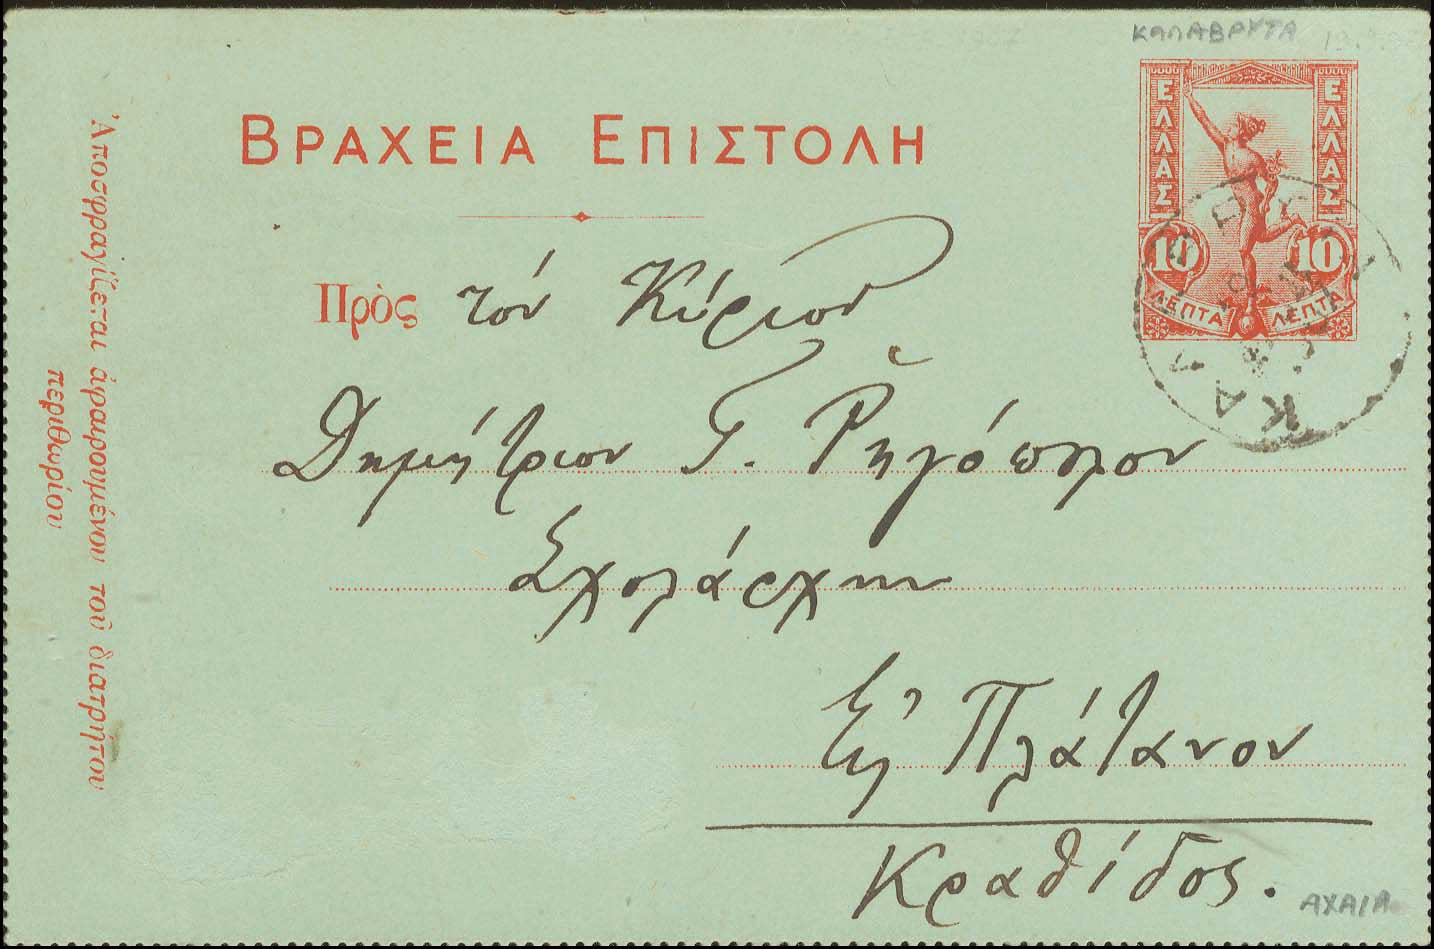 ΚΑΛΑΒΡΥΤΑ
ΒΡΑΧΕΙΑ ΕΠΙΣΤΟΛΗ
ΕΛΛΑΣ ΕΛΛΑΣ
10 10
ΛΕΠΤΑ ΛΕΠΤΑ
Πρὸς τόν Κύριον
Δημήτριον Γ. Ῥηγόπουλον
Σχολάρχην
Εἰς Πλάτανον
Κραθίδος.
ΑΧΑΙΑ
Ἀποσφραγίζεται ἀφαιρουμένου τοῦ διατρήτου
περιθωρίου